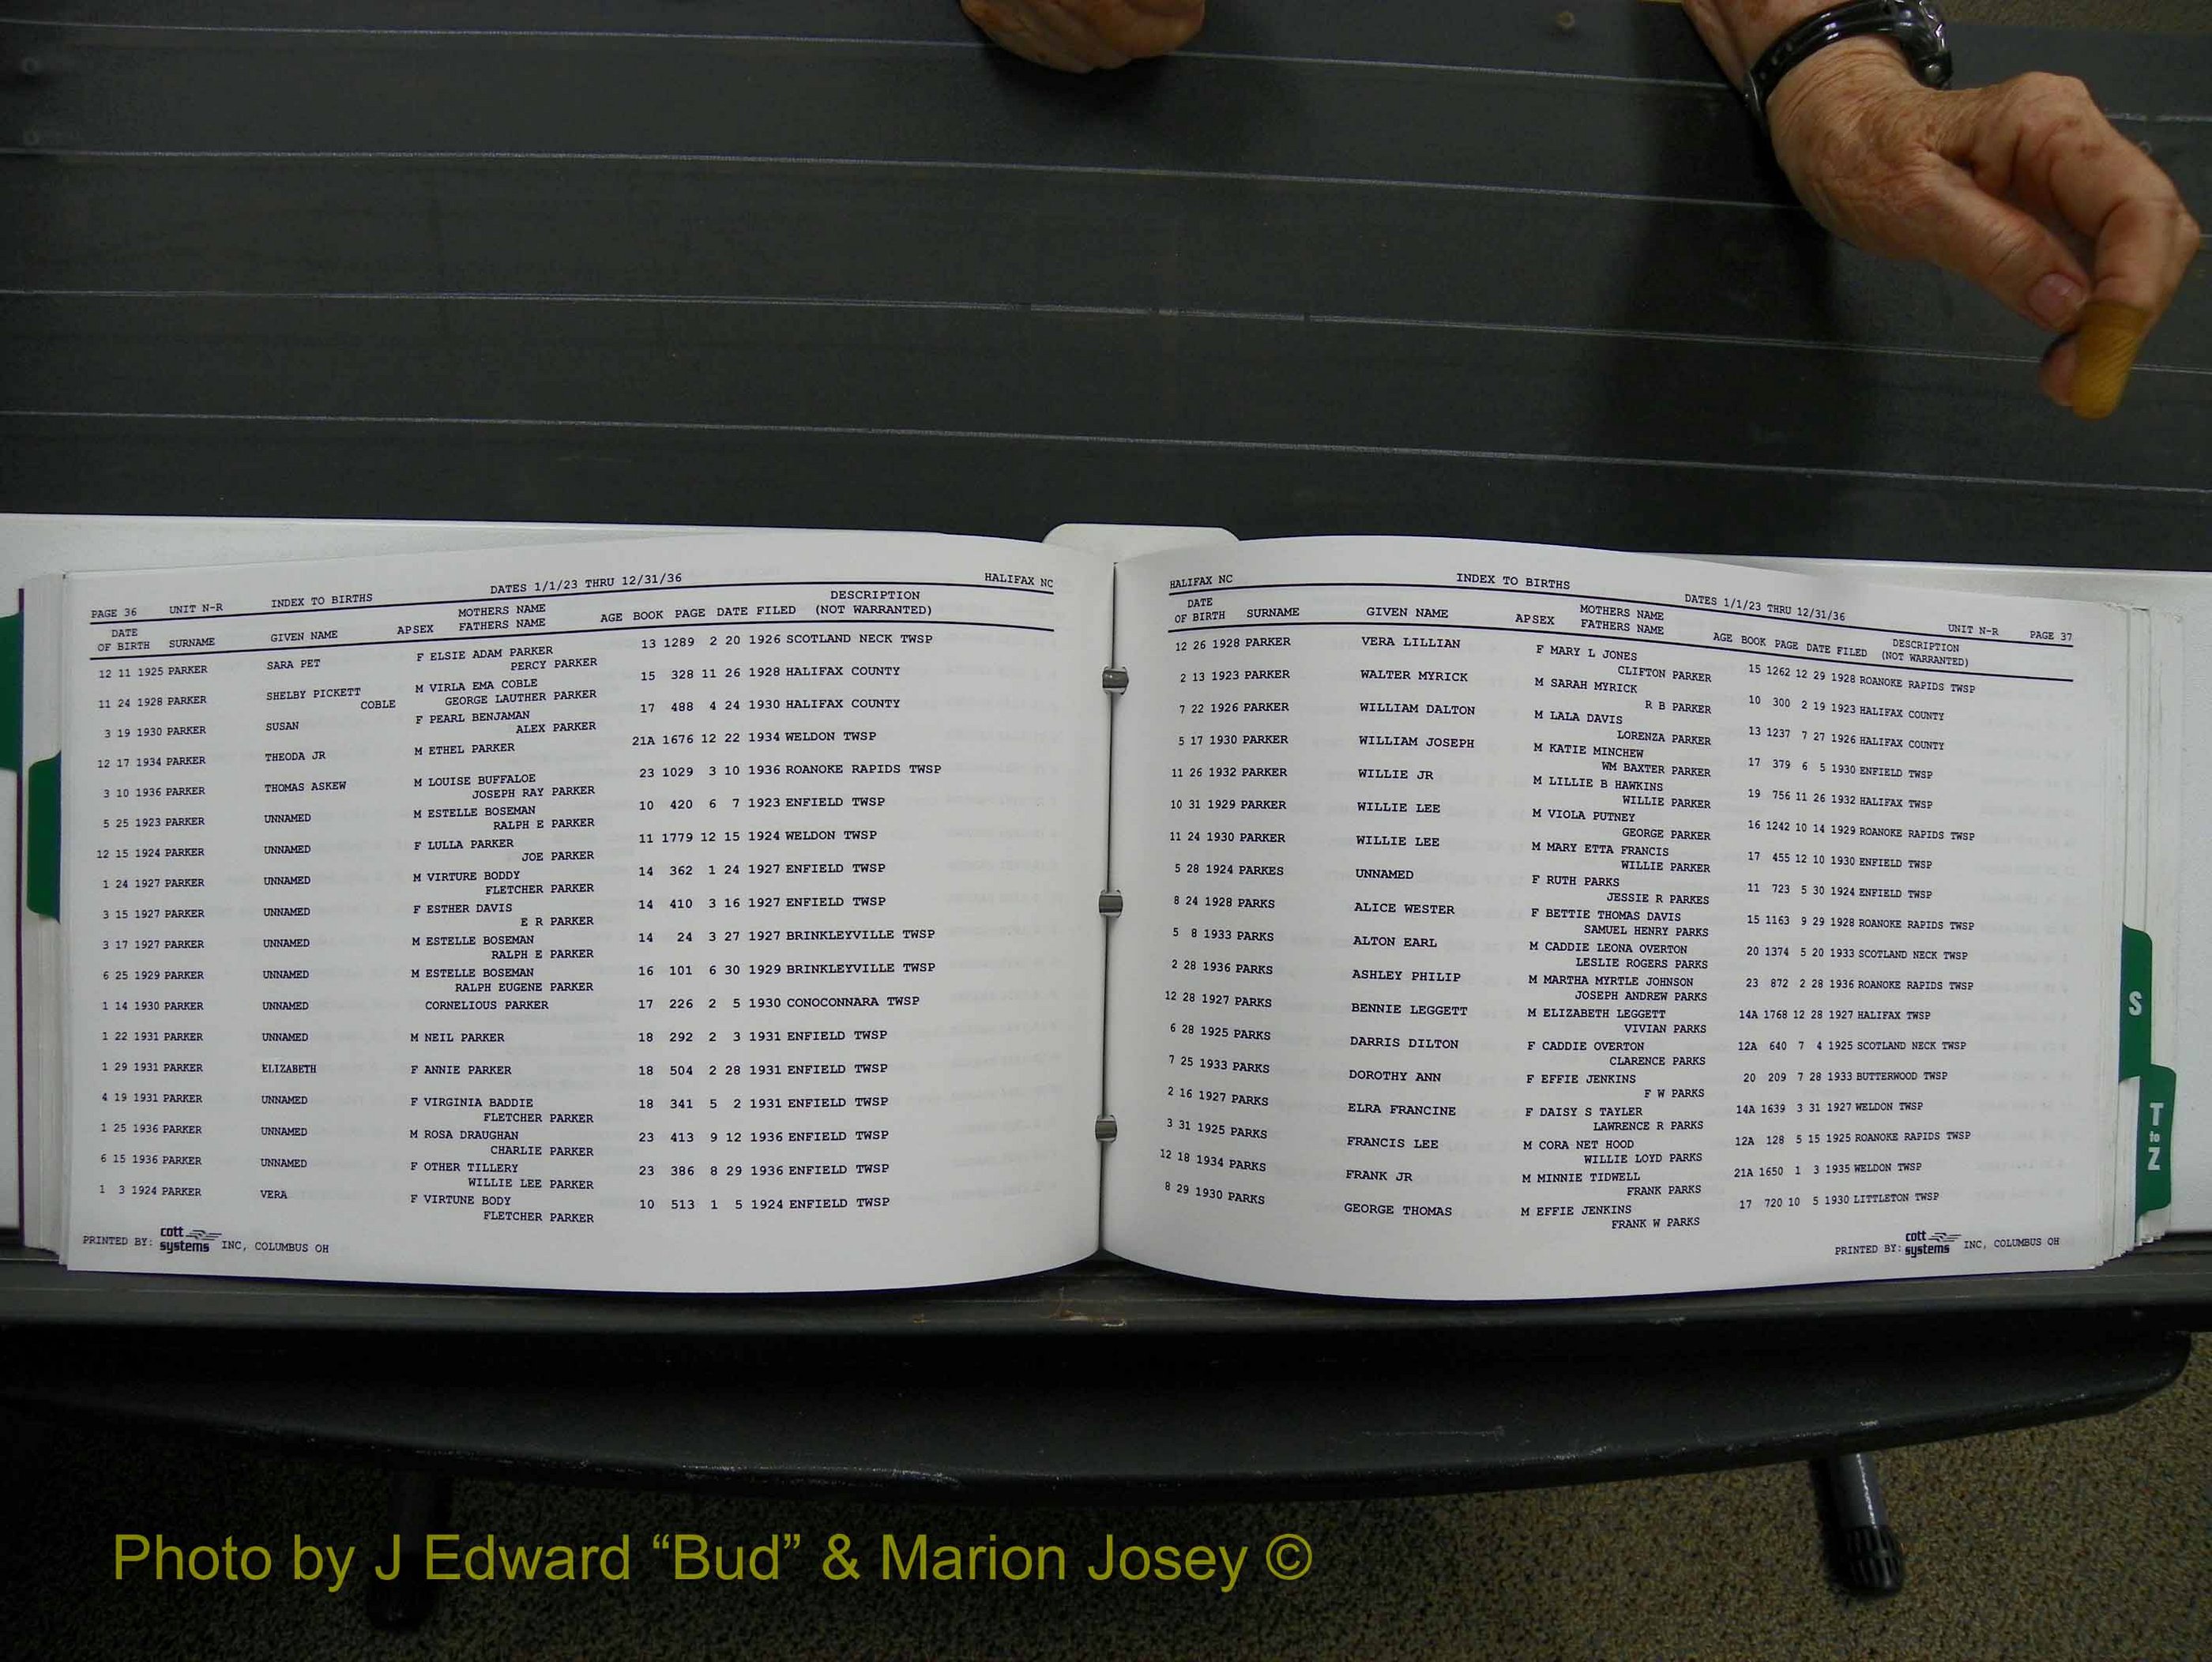 PAGE 36 UNIT N-R INDEX TO BIRTHS DATES 1/1/23 THRU 12/31/36 HALIFAX NC
DATE MOTHERS NAME DESCRIPTION
OF BIRTH SURNAME GIVEN NAME APSEX FATHERS NAME AGE BOOK PAGE DATE FILED (NOT WARRANTED)
12 11 1925 PARKER SARA PET F ELSIE ADAM PARKER 13 1289 2 20 1926 SCOTLAND NECK TWSP
PERCY PARKER
11 24 1928 PARKER SHELBY PICKETT M VIRLA EMA COBLE 15 328 11 26 1928 HALIFAX COUNTY
COBLE GEORGE LAUTHER PARKER
3 19 1930 PARKER SUSAN F PEARL BENJAMAN 17 488 4 24 1930 HALIFAX COUNTY
ALEX PARKER
12 17 1934 PARKER THEODA JR M ETHEL PARKER 21A 1676 12 22 1934 WELDON TWSP
3 10 1936 PARKER THOMAS ASKEW M LOUISE BUFFALOE 23 1029 3 10 1936 ROANOKE RAPIDS TWSP
JOSEPH RAY PARKER
5 25 1923 PARKER UNNAMED M ESTELLE BOSEMAN 10 420 6 7 1923 ENFIELD TWSP
RALPH E PARKER
12 15 1924 PARKER UNNAMED F LULLA PARKER 11 1779 12 15 1924 WELDON TWSP
JOE PARKER
1 24 1927 PARKER UNNAMED M VIRTURE BODDY 14 362 1 24 1927 ENFIELD TWSP
FLETCHER PARKER
3 15 1927 PARKER UNNAMED F ESTHER DAVIS 14 410 3 16 1927 ENFIELD TWSP
E R PARKER
3 17 1927 PARKER UNNAMED M ESTELLE BOSEMAN 14 24 3 27 1927 BRINKLEYVILLE TWSP
RALPH E PARKER
6 25 1929 PARKER UNNAMED M ESTELLE BOSEMAN 16 101 6 30 1929 BRINKLEYVILLE TWSP
RALPH EUGENE PARKER
1 14 1930 PARKER UNNAMED CORNELIOUS PARKER 17 226 2 5 1930 CONOCONNARA TWSP
1 22 1931 PARKER UNNAMED M NEIL PARKER 18 292 2 3 1931 ENFIELD TWSP
1 29 1931 PARKER ELIZABETH F ANNIE PARKER 18 504 2 28 1931 ENFIELD TWSP
4 19 1931 PARKER UNNAMED F VIRGINIA BADDIE 18 341 5 2 1931 ENFIELD TWSP
FLETCHER PARKER
1 25 1936 PARKER UNNAMED M ROSA DRAUGHAN 23 413 9 12 1936 ENFIELD TWSP
CHARLIE PARKER
6 15 1936 PARKER UNNAMED F OTHER TILLERY 23 386 8 29 1936 ENFIELD TWSP
WILLIE LEE PARKER
1 3 1924 PARKER VERA F VIRTUNE BODY 10 513 1 5 1924 ENFIELD TWSP
FLETCHER PARKER
PRINTED BY: cott systems INC, COLUMBUS OH
HALIFAX NC INDEX TO BIRTHS DATES 1/1/23 THRU 12/31/36 UNIT N-R PAGE 37
DATE MOTHERS NAME DESCRIPTION
OF BIRTH SURNAME GIVEN NAME APSEX FATHERS NAME AGE BOOK PAGE DATE FILED (NOT WARRANTED)
12 26 1928 PARKER VERA LILLIAN F MARY L JONES 15 1262 12 29 1928 ROANOKE RAPIDS TWSP
CLIFTON PARKER
2 13 1923 PARKER WALTER MYRICK M SARAH MYRICK 10 300 2 19 1923 HALIFAX COUNTY
R B PARKER
7 22 1926 PARKER WILLIAM DALTON M LALA DAVIS 13 1237 7 27 1926 HALIFAX COUNTY
LORENZA PARKER
5 17 1930 PARKER WILLIAM JOSEPH M KATIE MINCHEW 17 379 6 5 1930 ENFIELD TWSP
WM BAXTER PARKER
11 26 1932 PARKER WILLIE JR M LILLIE B HAWKINS 19 756 11 26 1932 HALIFAX TWSP
WILLIE PARKER
10 31 1929 PARKER WILLIE LEE M VIOLA PUTNEY 16 1242 10 14 1929 ROANOKE RAPIDS TWSP
GEORGE PARKER
11 24 1930 PARKER WILLIE LEE M MARY ETTA FRANCIS 17 455 12 10 1930 ENFIELD TWSP
WILLIE PARKER
5 28 1924 PARKES UNNAMED F RUTH PARKS 11 723 5 30 1924 ENFIELD TWSP
JESSIE R PARKES
8 24 1928 PARKS ALICE WESTER F BETTIE THOMAS DAVIS 15 1163 9 29 1928 ROANOKE RAPIDS TWSP
SAMUEL HENRY PARKS
5 8 1933 PARKS ALTON EARL M CADDIE LEONA OVERTON 20 1374 5 20 1933 SCOTLAND NECK TWSP
LESLIE ROGERS PARKS
2 28 1936 PARKS ASHLEY PHILIP M MARTHA MYRTLE JOHNSON 23 872 2 28 1936 ROANOKE RAPIDS TWSP
JOSEPH ANDREW PARKS
12 28 1927 PARKS BENNIE LEGGETT M ELIZABETH LEGGETT 14A 1768 12 28 1927 HALIFAX TWSP
VIVIAN PARKS
6 28 1925 PARKS DARRIS DILTON F CADDIE OVERTON 12A 640 7 4 1925 SCOTLAND NECK TWSP
CLARENCE PARKS
7 25 1933 PARKS DOROTHY ANN F EFFIE JENKINS 20 209 7 28 1933 BUTTERWOOD TWSP
F W PARKS
2 16 1927 PARKS ELRA FRANCINE F DAISY S TAYLER 14A 1639 3 31 1927 WELDON TWSP
LAWRENCE R PARKS
3 31 1925 PARKS FRANCIS LEE M CORA NET HOOD 12A 128 5 15 1925 ROANOKE RAPIDS TWSP
WILLIE LOYD PARKS
12 18 1934 PARKS FRANK JR M MINNIE TIDWELL 21A 1650 1 3 1935 WELDON TWSP
FRANK PARKS
8 29 1930 PARKS GEORGE THOMAS M EFFIE JENKINS 17 720 10 5 1930 LITTLETON TWSP
FRANK W PARKS
PRINTED BY: cott systems INC, COLUMBUS OH
S
T
to
Z
Photo by J Edward “Bud” & Marion Josey ©